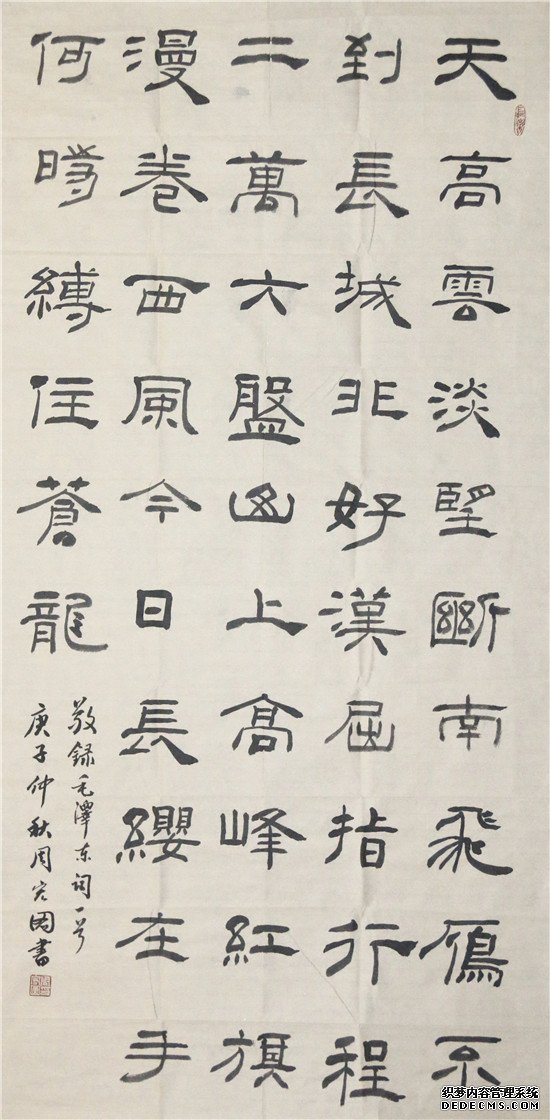 天高雲淡望斷南飛鴈不
到長城非好漢屈指行程
二萬六盤山上高峰紅旗
漫卷西風今日長纓在手
何時縛住蒼龍
敬録毛澤东词一首
庚子仲秋周国書
织梦内容管理系统
DEDECMS.COM